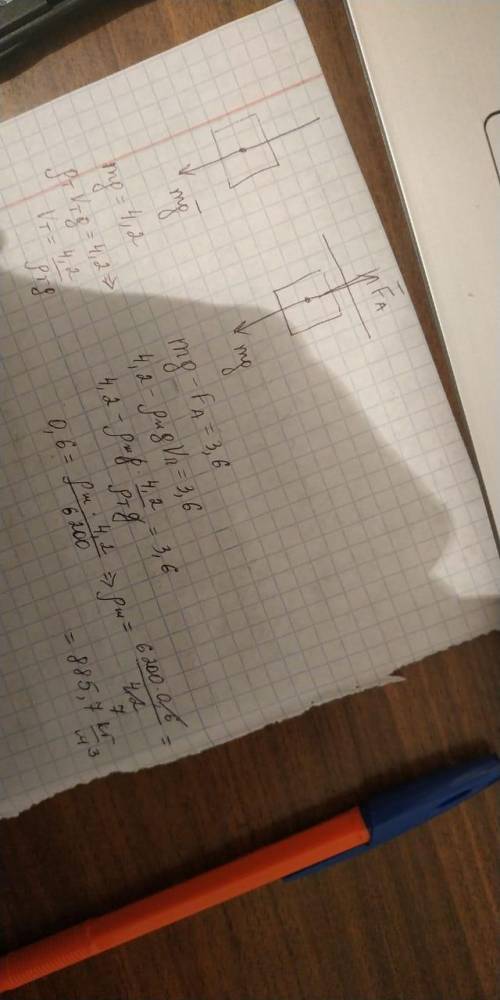 mg
mg = 4,2
ρт Vт g = 4,2 ⇒
Vт = 4,2 / ρт g
F_A
mg
mg − F_A = 3,6
4,2 − ρж g Vп = 3,6
4,2 − ρж g · 4,2 / ρт g = 3,6
0,6 = ρж · 4,2 / 6200 ⇒ ρж = 6200 · 0,6 / 4,2 =
7
= 885,7 кг / м3